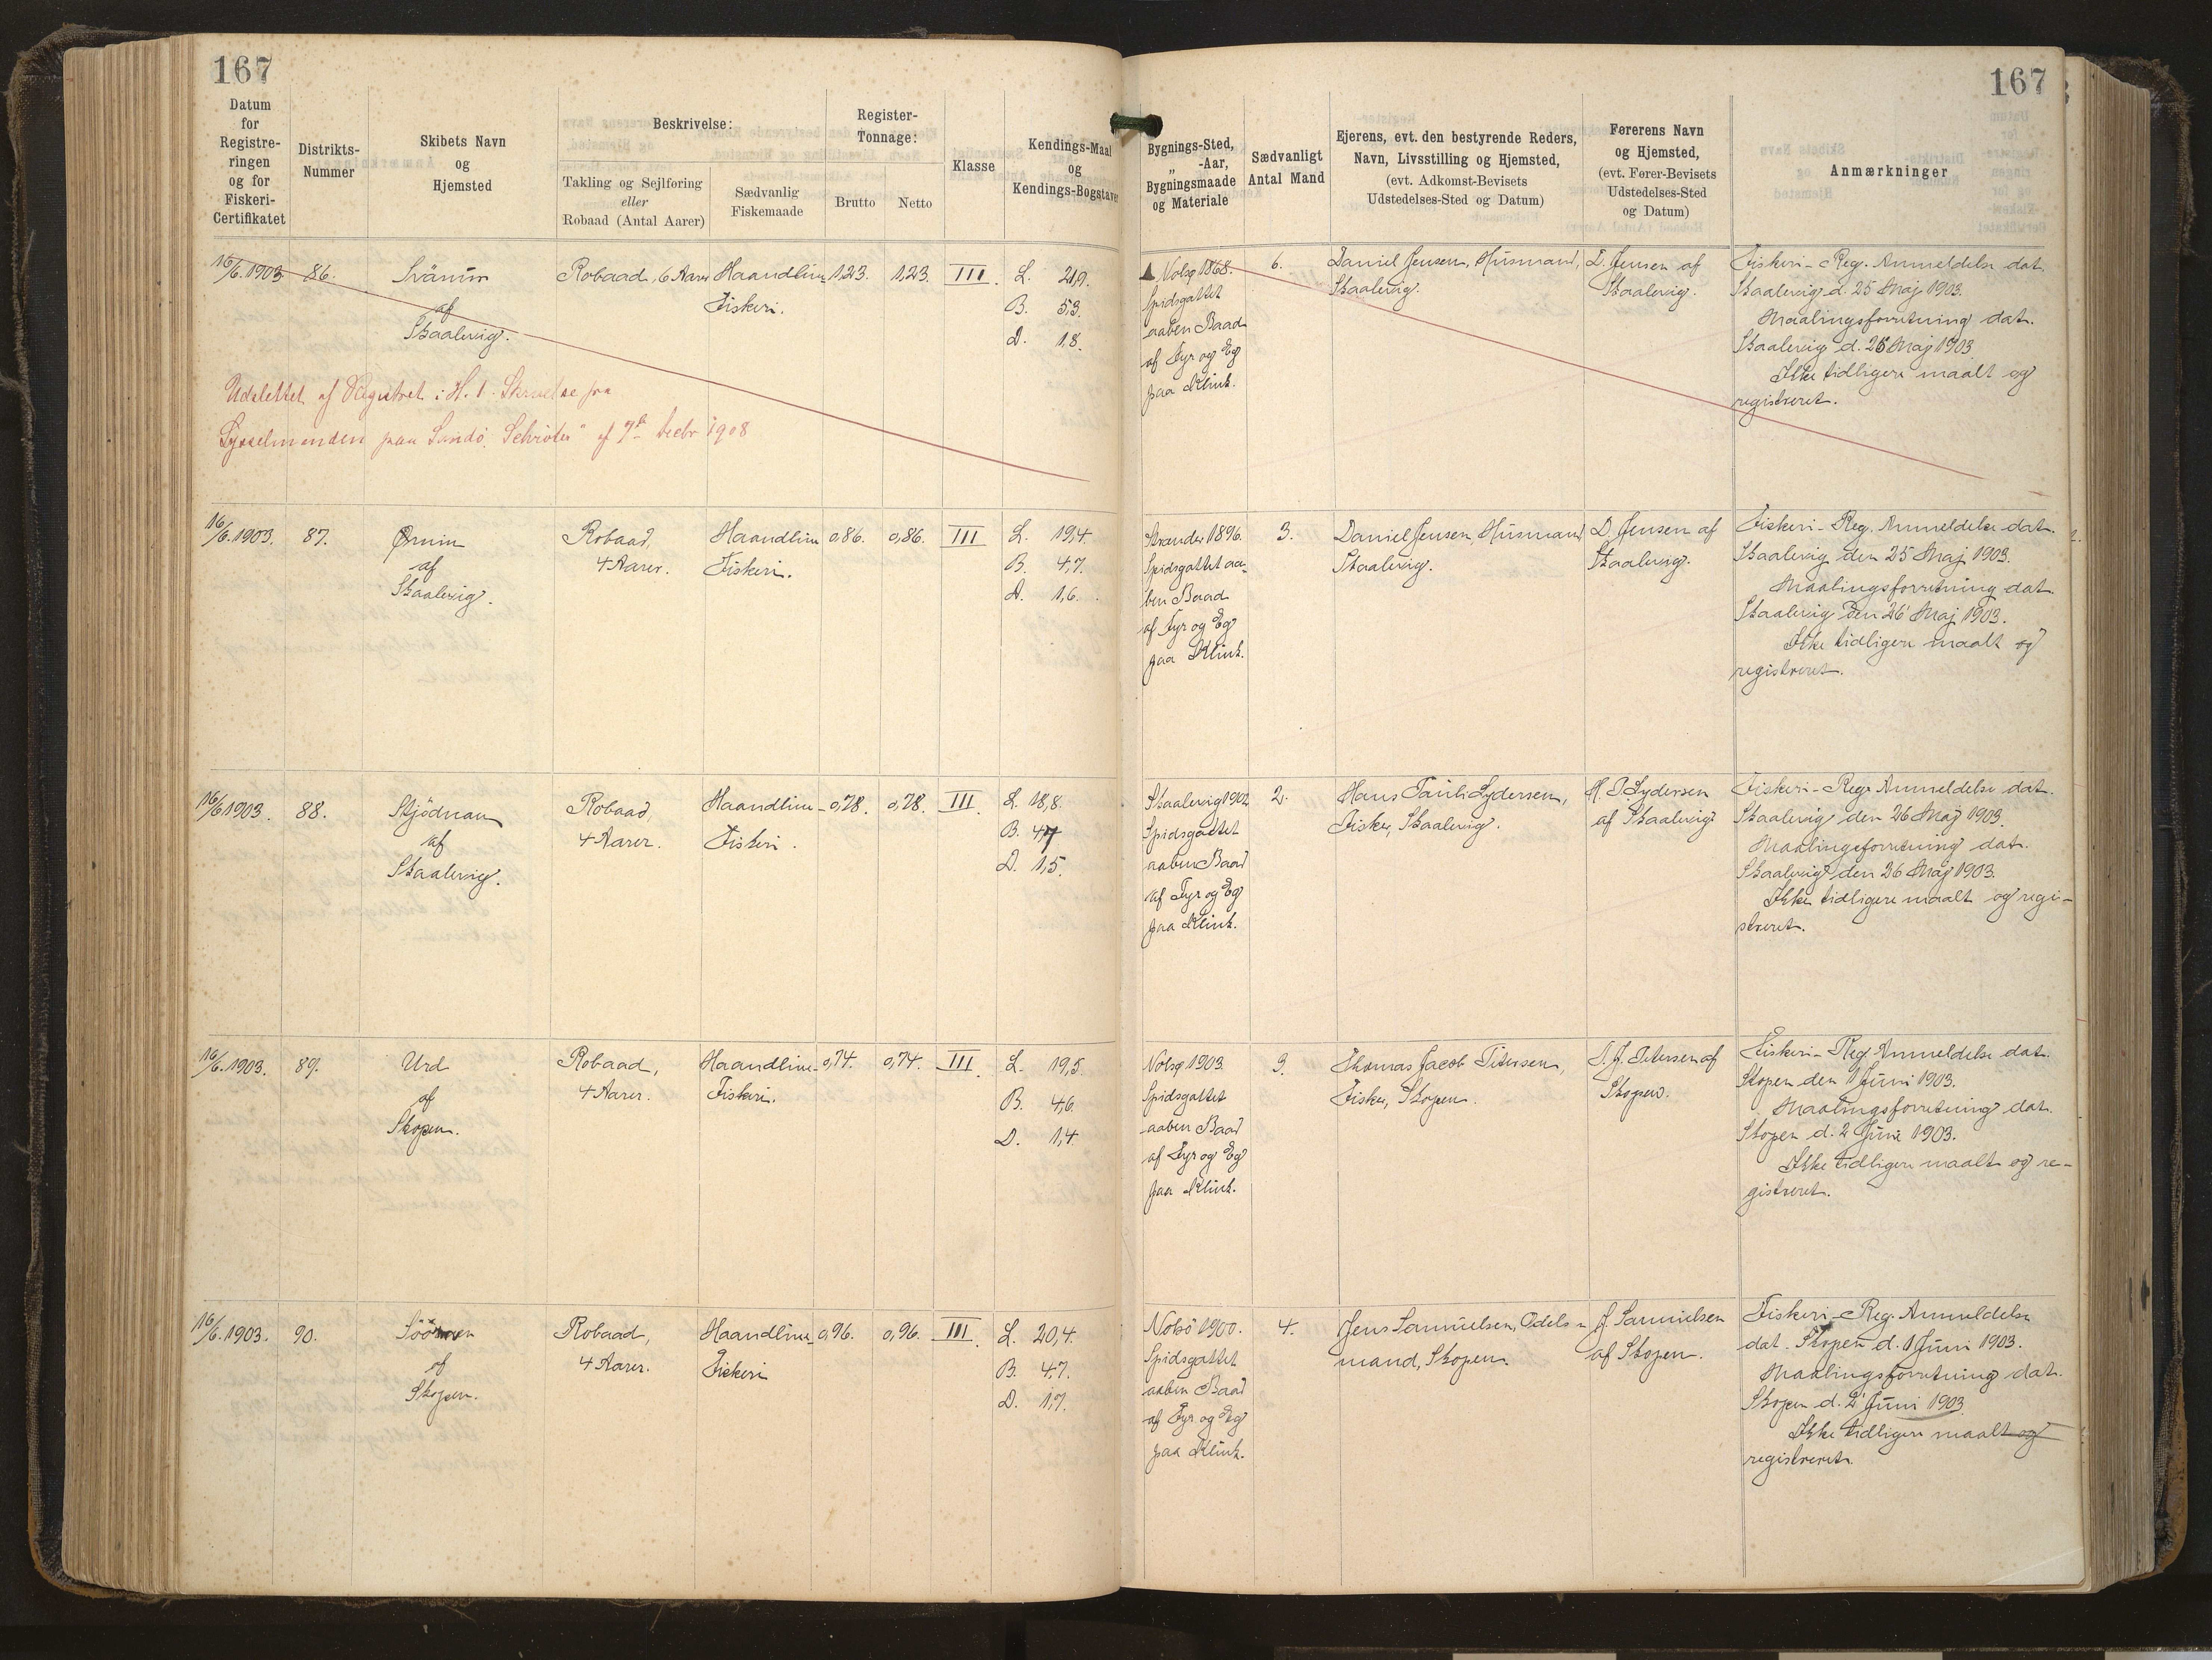 167
167
Datum
for
Registre-
ringen
og for
Fiskeri-
Certifikatet
Distrikts-
Nummer
Skibets Navn
og
Hjemsted
Beskrivelse:
Takling og Sejlføring
eller
Robaad (Antal Aarer)
Sædvanlig
Fiskemaade
Register-
Tonnage:
Brutto
Netto
Klasse
Kendings-Maal
og
Kendings-Bogstaver
Bygnings-Sted,
„ -Aar,
Bygningsmaade
og Materiale
Sædvanligt
Antal Mand
Ejerens, evt. den bestyrende Reders,
Navn, Livsstilling og Hjemsted,
(evt. Adkomst-Bevisets
Udstedelses-Sted og Datum)
Førerens Navn
og Hjemsted,
(evt. Fører-Bevisets
Udstedelses-Sted
og Datum)
Anmærkninger
16/6.1903
86.
Svänur
af
Skaalevig.
Robaad, 6 Aarer
Haandline
Fiskeri.
1,23.
1,23.
III.
L. 21,9.
B. 5,3.
D. 1,8.
Nolsø 1868.
Spidsgattet
aaben Baad
af Fyr og Eg
paa Klink.
6.
Daniel Jensen, Husmand,
Skaalevig.
D. Jensen af
Skaalevig.
Fiskeri-Reg. Anmeldelse dat.
Skaalevig d. 25 Maj 1903.
Maalingsforretning dat.
Skaalevig d. 26 Maj 1903
Ikke tidligere maalt og
registreret.
Udslettet af Registret i H. t. Skrivelse fra
Sysselmanden paa Sandö, Schröter af 7de Decbr 1908
16/6.1903.
87.
Ørnin
af
Skaalevig.
Robaad,
4 Aarer.
Haandline
Fiskeri.
0,86.
0,86.
III
L. 19,4
B. 4,7.
D. 1,6.
Strander 1896.
Spidsgattet aa-
ben Baad
af Fyr og Eg
paa Klink.
3.
Daniel Jensen, Husmand
Skaalevig.
D. Jensen af
Skaalevig.
Fiskeri-Reg. Anmeldelse dat.
Skaalevig den 25 Maj 1903.
Maalingsforretning dat.
Skaalevig den 26 Maj 1903.
Ikke tidligere maalt og
registreret.
16/6 1903.
88.
Stjödnan
af
Skaalevig.
Robaad,
4 Aarer.
Haandline-
Fiskeri.
0,78.
0,78.
III.
L. 18,8.
B. 4,7
D. 1,5.
Skaalevig 1902
Spidsgattet
aaben Baad
af Fyr og Eg
paa Klink.
2.
Hans Pauli Lydersen,
Fisker, Skaalevig.
H. P. Lydersen
af Skaalevig
Fiskeri-Reg. Anmeldelse dat.
Skaalevig den 26 Maj 1903.
Maalingsforretning dat.
Skaalevig den 26 Maj 1903.
Ikke tidligere maalt og regi-
streret.
16/6.1903.
89.
Urd
af
Skopen.
Robaad,
4 Aarer.
Haandline-
Fiskeri.
0,74.
0,74.
III.
L. 19,5.
B. 4,6.
D. 1,4.
Nolsø 1903.
Spidsgattet
aaben Baad
af Fyr og Eg
paa Klink.
3.
Thomas Jacob Petersen,
Fisker, Skopen.
T. J. Petersen af
Skopen.
Fiskeri-Reg. Anmeldelse dat.
Skopen den 1 Juni 1903.
Maalingsforretning dat.
Skopen d. 2 Juni 1903.
Ikke tidligere maalt og re-
gistreret.
16/6.1903.
90.
af
Skopen.
Robaad,
4 Aarer.
Haandline-
Fiskeri
0,96.
0,96.
III.
L. 20,4.
B. 4,7.
D. 1,7.
Nolsö 1900.
Spidsgattet
aaben Baad
af Fyr og Eg
paa Klink.
4.
Jens Samuelsen, Odels-
mand, Skopen.
J. Samuelsen
af Skopen.
Fiskeri-Reg. Anmeldelse
dat. Skopen d. 1 Juni 1903.
Maalingsforretning dat.
Skopen d. 2 Juni 1903
Ikke tidligere maalt og
registreret.